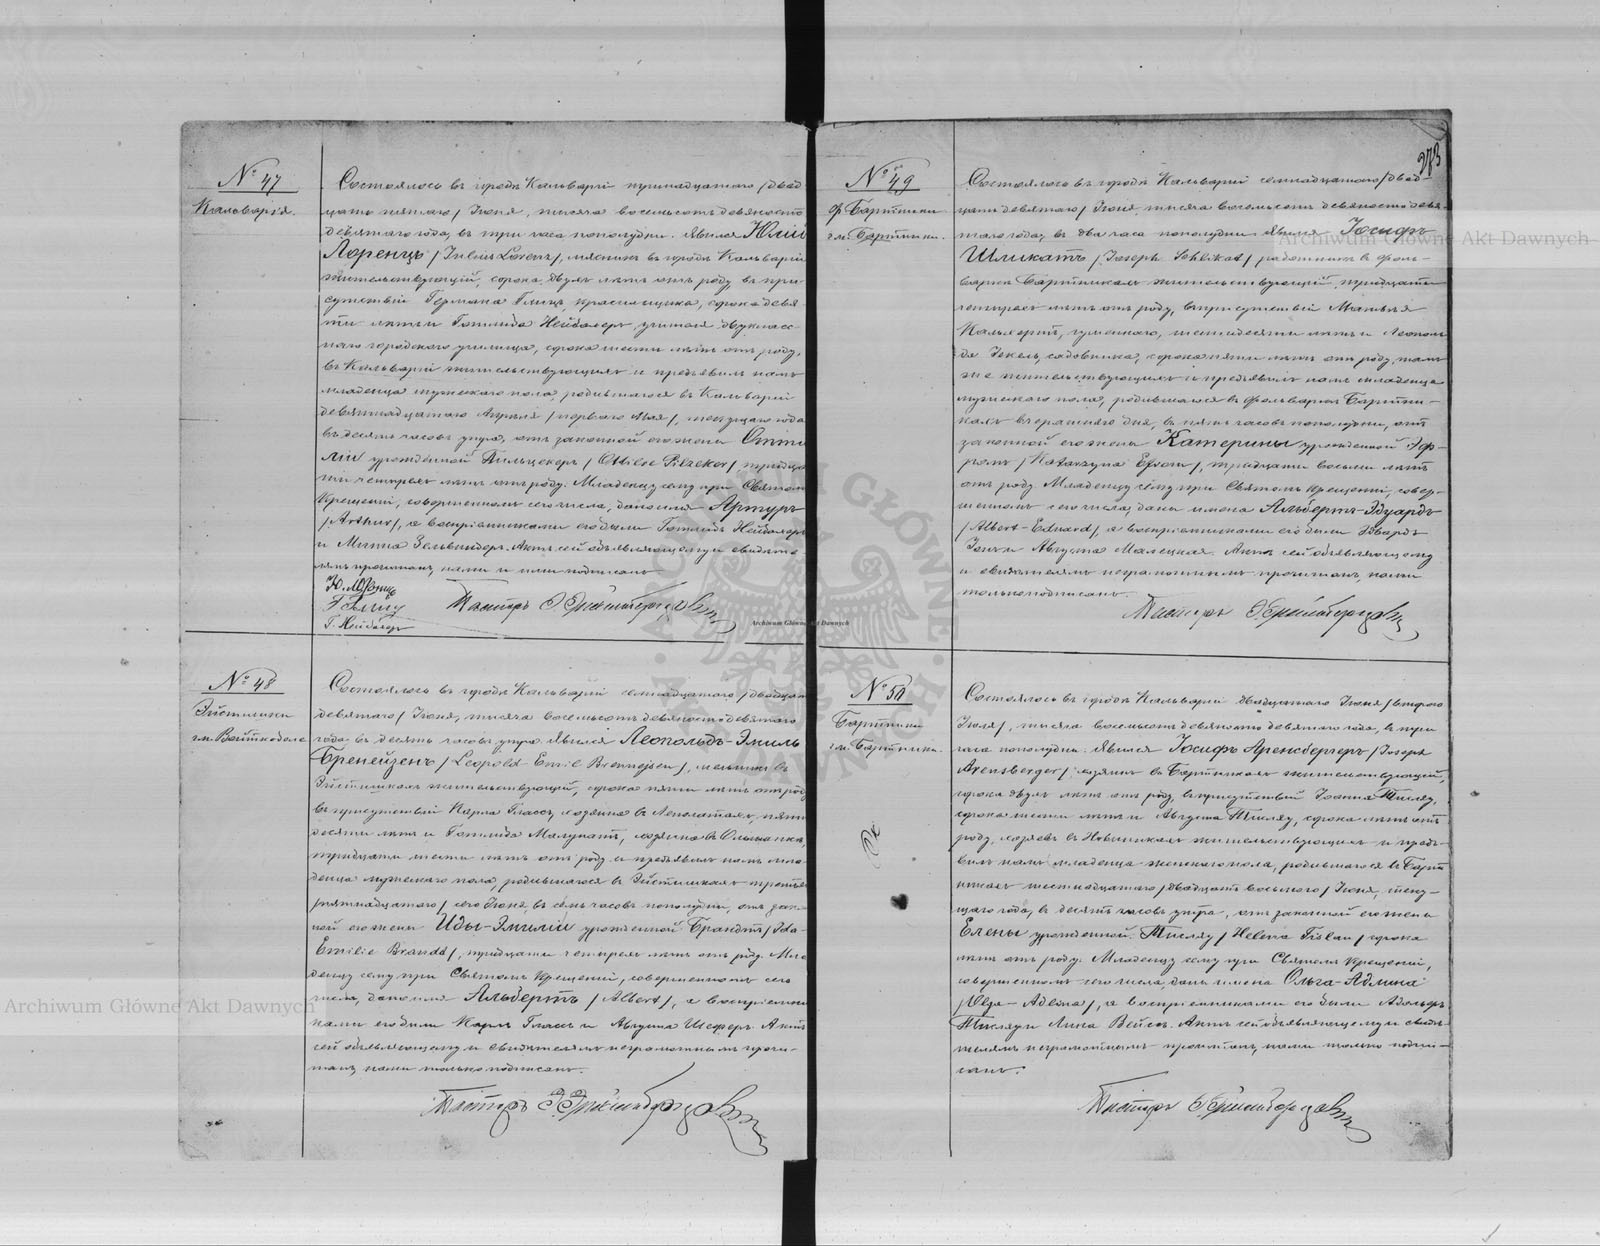 № 47
Кальварія.
Состоялось въ городѣ Кальваріи тринадцатаго /двад
цать пятаго/ Іюня, тысяча восемьсотъ девяносто
девятаго года, въ три часа пополудни. Явился Юлій
Лоренцъ /Julius Lorenz/, мясникъ въ городѣ Кальваріи
жительствующій, сорока двухъ лѣтъ отъ роду, въ при-
сутствіи Германа Глицъ, красильщика, сорока девя-
ти лѣтъ и Готлиба Нейдалеръ, учителя двукласс-
наго городскаго училища, сорока шести лѣтъ отъ роду,
въ Кальваріи жительствующихъ и предъявилъ намъ
младенца мужескаго пола, родившагося въ Кальваріи
девятнадцатаго Апрѣля /перваго Мая/, текущаго года
въ десять часовъ утра, отъ законной его жены Отти
ліи урожденной Пильцекеръ /Ottilie Pilzeker/ тридца
ти четырехъ лѣтъ отъ роду. Младенцу сему при Святомъ
Крещеніи, совершенномъ сего числа, дано имя Артуръ
/Arthur/, а воспріемниками его были Готлибъ Нейдалеръ
и Минна Зельвиндеръ. Актъ сей объявляющему и свидѣте-
лямъ прочитанъ, нами и ими подписанъ.
Ю. Лоренцъ
Г. Глицъ
Г. Нейдалеръ
Пасторъ
№ 48
гм. Войткобола
Состоялось въ городѣ Кальваріи семнадцатаго /двадцать
девятаго/ Іюня, тысяча восемьсотъ девяносто девятаго
года въ десять часовъ утра. Явился Леопольдъ-Эмиль
Бренейзенъ /Leopold-Emil Brennejsen/, мельникъ въ
жительствующій, сорока пяти лѣтъ отъ роду
въ присутствіи Карла Глассъ, хозяина въ пяти
десяти лѣтъ и Готлиба хозяина въ
тридцати шести лѣтъ отъ роду и предъявилъ намъ мла-
денца мужескаго пола, родившагося въ третьяго
/пятнадцатаго/ сего Іюня, въ семь часовъ пополудни, отъ закон-
ной его жены Иды-Эмиліи урожденной Брандтъ /Ida-
Emilie Brandt/, тридцати четырехъ лѣтъ отъ роду. Мла
денцу сему при Святомъ Крещеніи, совершенномъ сего
числа, дано имя Альбертъ /Albert/, а воспріемни-
ками его были Карлъ Глассъ и Августа Шеферъ. Актъ
сей объявляющему и свидѣтелямъ неграмотнымъ прочи-
танъ, нами только подписанъ.
Пасторъ
273
№ 49
ф. Бартники
гм. Бартники.
Состоялось въ городѣ Кальваріи семнадцатаго /двад-
цать девятаго/ Іюня, тысяча восемьсотъ девяносто девя-
таго года, въ два часа пополудни. Явился Іосифъ
Шликатъ /Joseph Schlikat/ работникъ въ фоль-
варкѣ Бартникахъ жительствующій, тридцати
четырехъ лѣтъ отъ роду, въ присутствіи Матвѣя
шестидесяти лѣтъ и Леополь
да садовника, сорока пяти лѣтъ отъ роду, тамъ
же жительствующихъ и предъявилъ намъ младенца
мужескаго пола, родившагося въ фольваркѣ Бартни-
кахъ вчерашняго дня, въ пять часовъ пополудни, отъ
законной его жены Катерины урожденной Эф-
ромъ /Katarzyna Efrom/, тридцати восьми лѣтъ
отъ роду. Младенцу сему при Святомъ Крещеніи, совер-
шенномъ сего числа, даны имена Альбертъ-Эдуардъ
/Albert-Eduard/, а воспріемниками его были Эдвардъ
и Августа Малецкая. Актъ сей объявляющему
и свидѣтелямъ неграмотнымъ прочитанъ, нами
только подписанъ.
Пасторъ
№ 50
Бартники
гм. Бартники.
Состоялось въ городѣ Кальваріи двадцатаго Іюня /втораго
Іюля/, тысяча восемьсотъ девяносто девятаго года, въ три
часа пополудни. Явился Іосифъ Аренсбергеръ /Joseph
Arensberger/, хозяинъ въ Бартникахъ жительствующій,
сорока двухъ лѣтъ отъ роду, въ присутствіи Іоанна Тисляу,
сорока шести лѣтъ и Августа Тисляу, сорока лѣтъ отъ
роду, хозяевъ въ Новиникахъ жительствующихъ и предъ-
вилъ намъ младенца женскаго пола, родившагося въ Барт
никахъ шестнадцатаго /двадцать восьмаго/ Іюня, теку-
щаго года, въ десять часовъ утра, отъ законной его жены
Елены урожденной Тисляу /Helena Tislau/ сорока
лѣтъ отъ роду. Младенцу сему при Святомъ Крещеніи,
совершенномъ сего числа, даны имена Ольга-Адлина
/Olga-Adlina/, а воспріемниками его были Адольфъ
Тисляу и Лина Вейсъ. Актъ сей объявляющему и свидѣ-
телямъ неграмотнымъ прочитанъ, нами только подпи-
санъ.
Пасторъ
Archiwum Główne Akt Dawnych
Archiwum Główne Akt Dawnych
Archiwum Główne Akt Dawnych